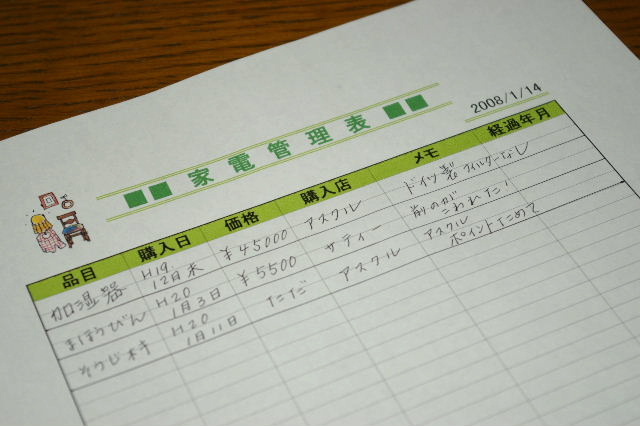 2008/1/14
■■ 家電管理表 ■■
品目 購入日 価格 購入店 メモ 経過年月
加湿器 H19. 12月末 ¥45000 アスクル ドイツ製 フィルターなし
まほうびん H20 1月3日 ¥5500 サティー 前のが こわれた!
そうじキキ H20 1月11日 ただ アスクル アスクル ポイントためて